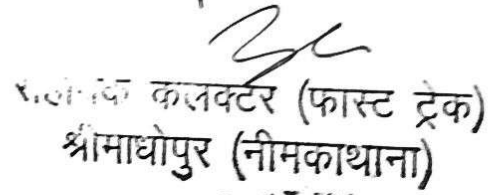 कलक्टर (फास्ट ट्रेक)
श्रीमाधोपुर (नीमकाथाना)